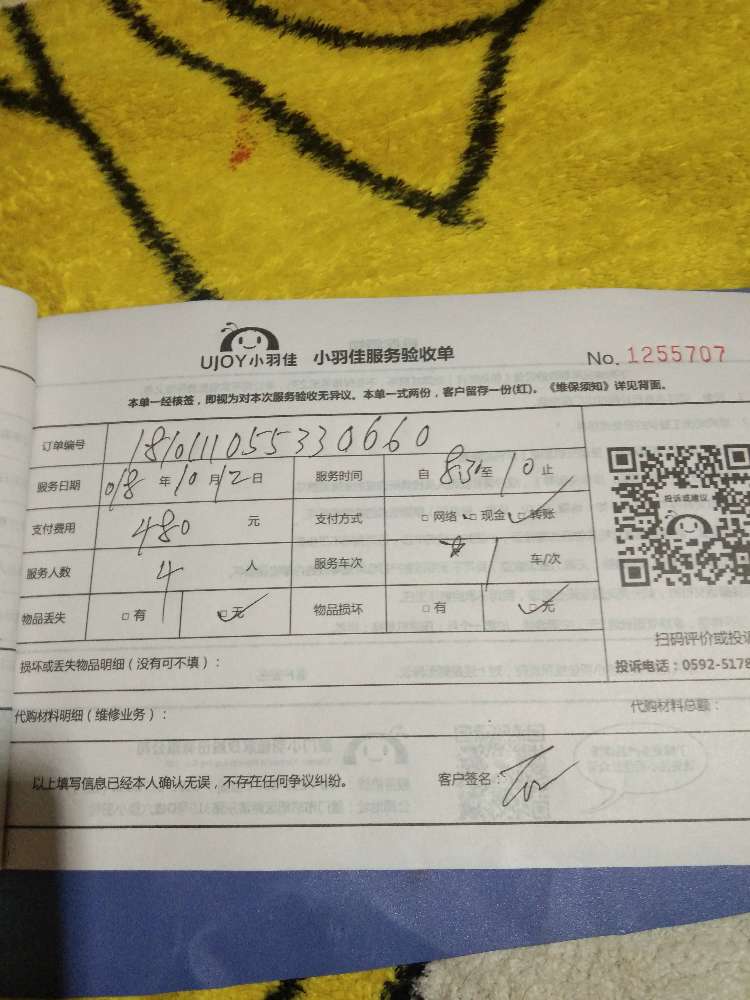 UJOY小羽佳 小羽佳服务验收单 No. 1255707
本单一经核签，即视为对本次服务验收无异议。本单一式两份，客户留存一份(红)。《维保须知》详见背面。
订单编号 181011055330660
服务日期 018 年 10 月 12 日 服务时间 自 830 至 10 止
投诉或建议
支付费用 480 元 支付方式 □ 网络 □ 现金 □ 转账
服务人数 4 人 服务车次 1 车/次
物品丢失 □ 有 □ 无 物品损坏 □ 有 □ 无
扫码评价或投诉
损坏或丢失物品明细（没有可不填）：
投诉电话：0592-5178
代购材料明细（维修业务）： 代购材料总额：
以上填写信息已经本人确认无误，不存在任何争议纠纷。 客户签名：